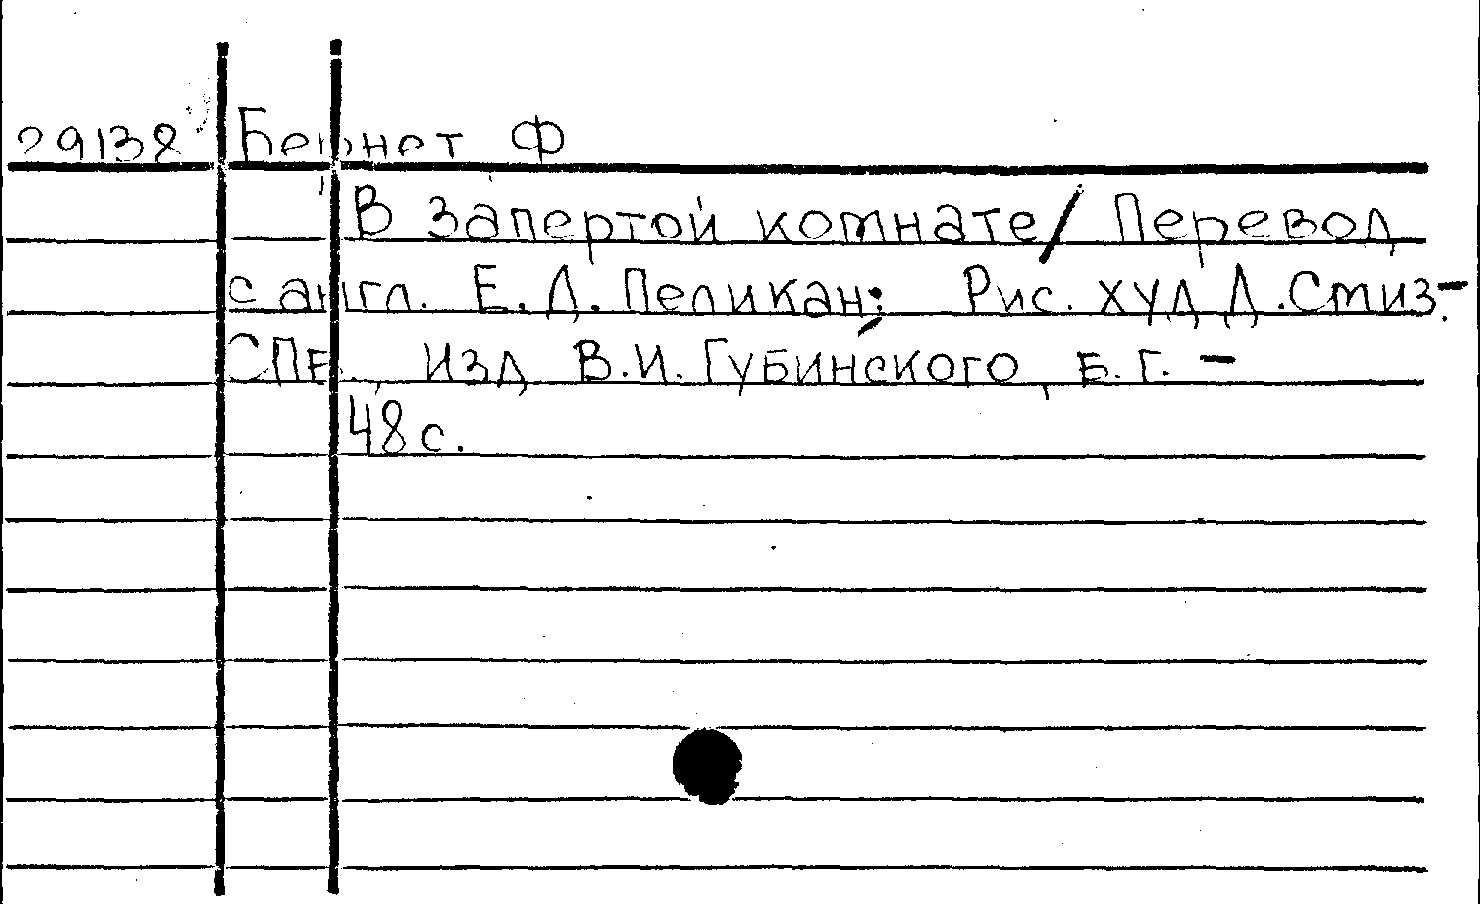 29138 Бернет Ф
В запертой комнате / Перевод
с англ. Е. Д. Пеликан; Рис. худ Д. Смиз. -
СПБ., изд В.И. Губинского, Б. Г. -
48 с.